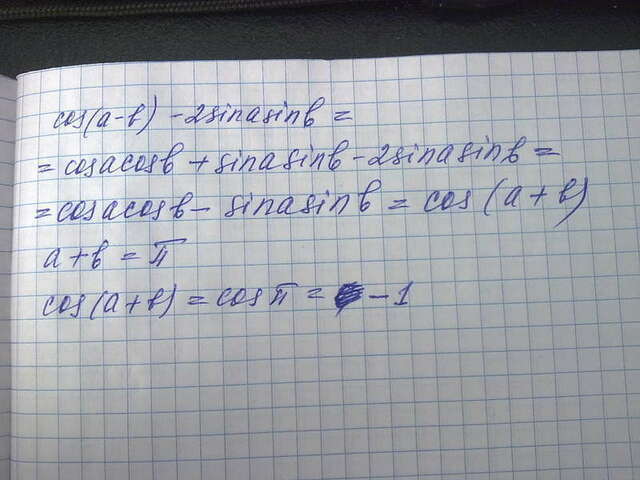 cos(a-b) - 2sinasinb =
= cosacosb + sinasinb - 2sinasinb =
= cosacosb - sinasinb = cos(a+b)
a+b = π
cos(a+b) = cosπ = -1